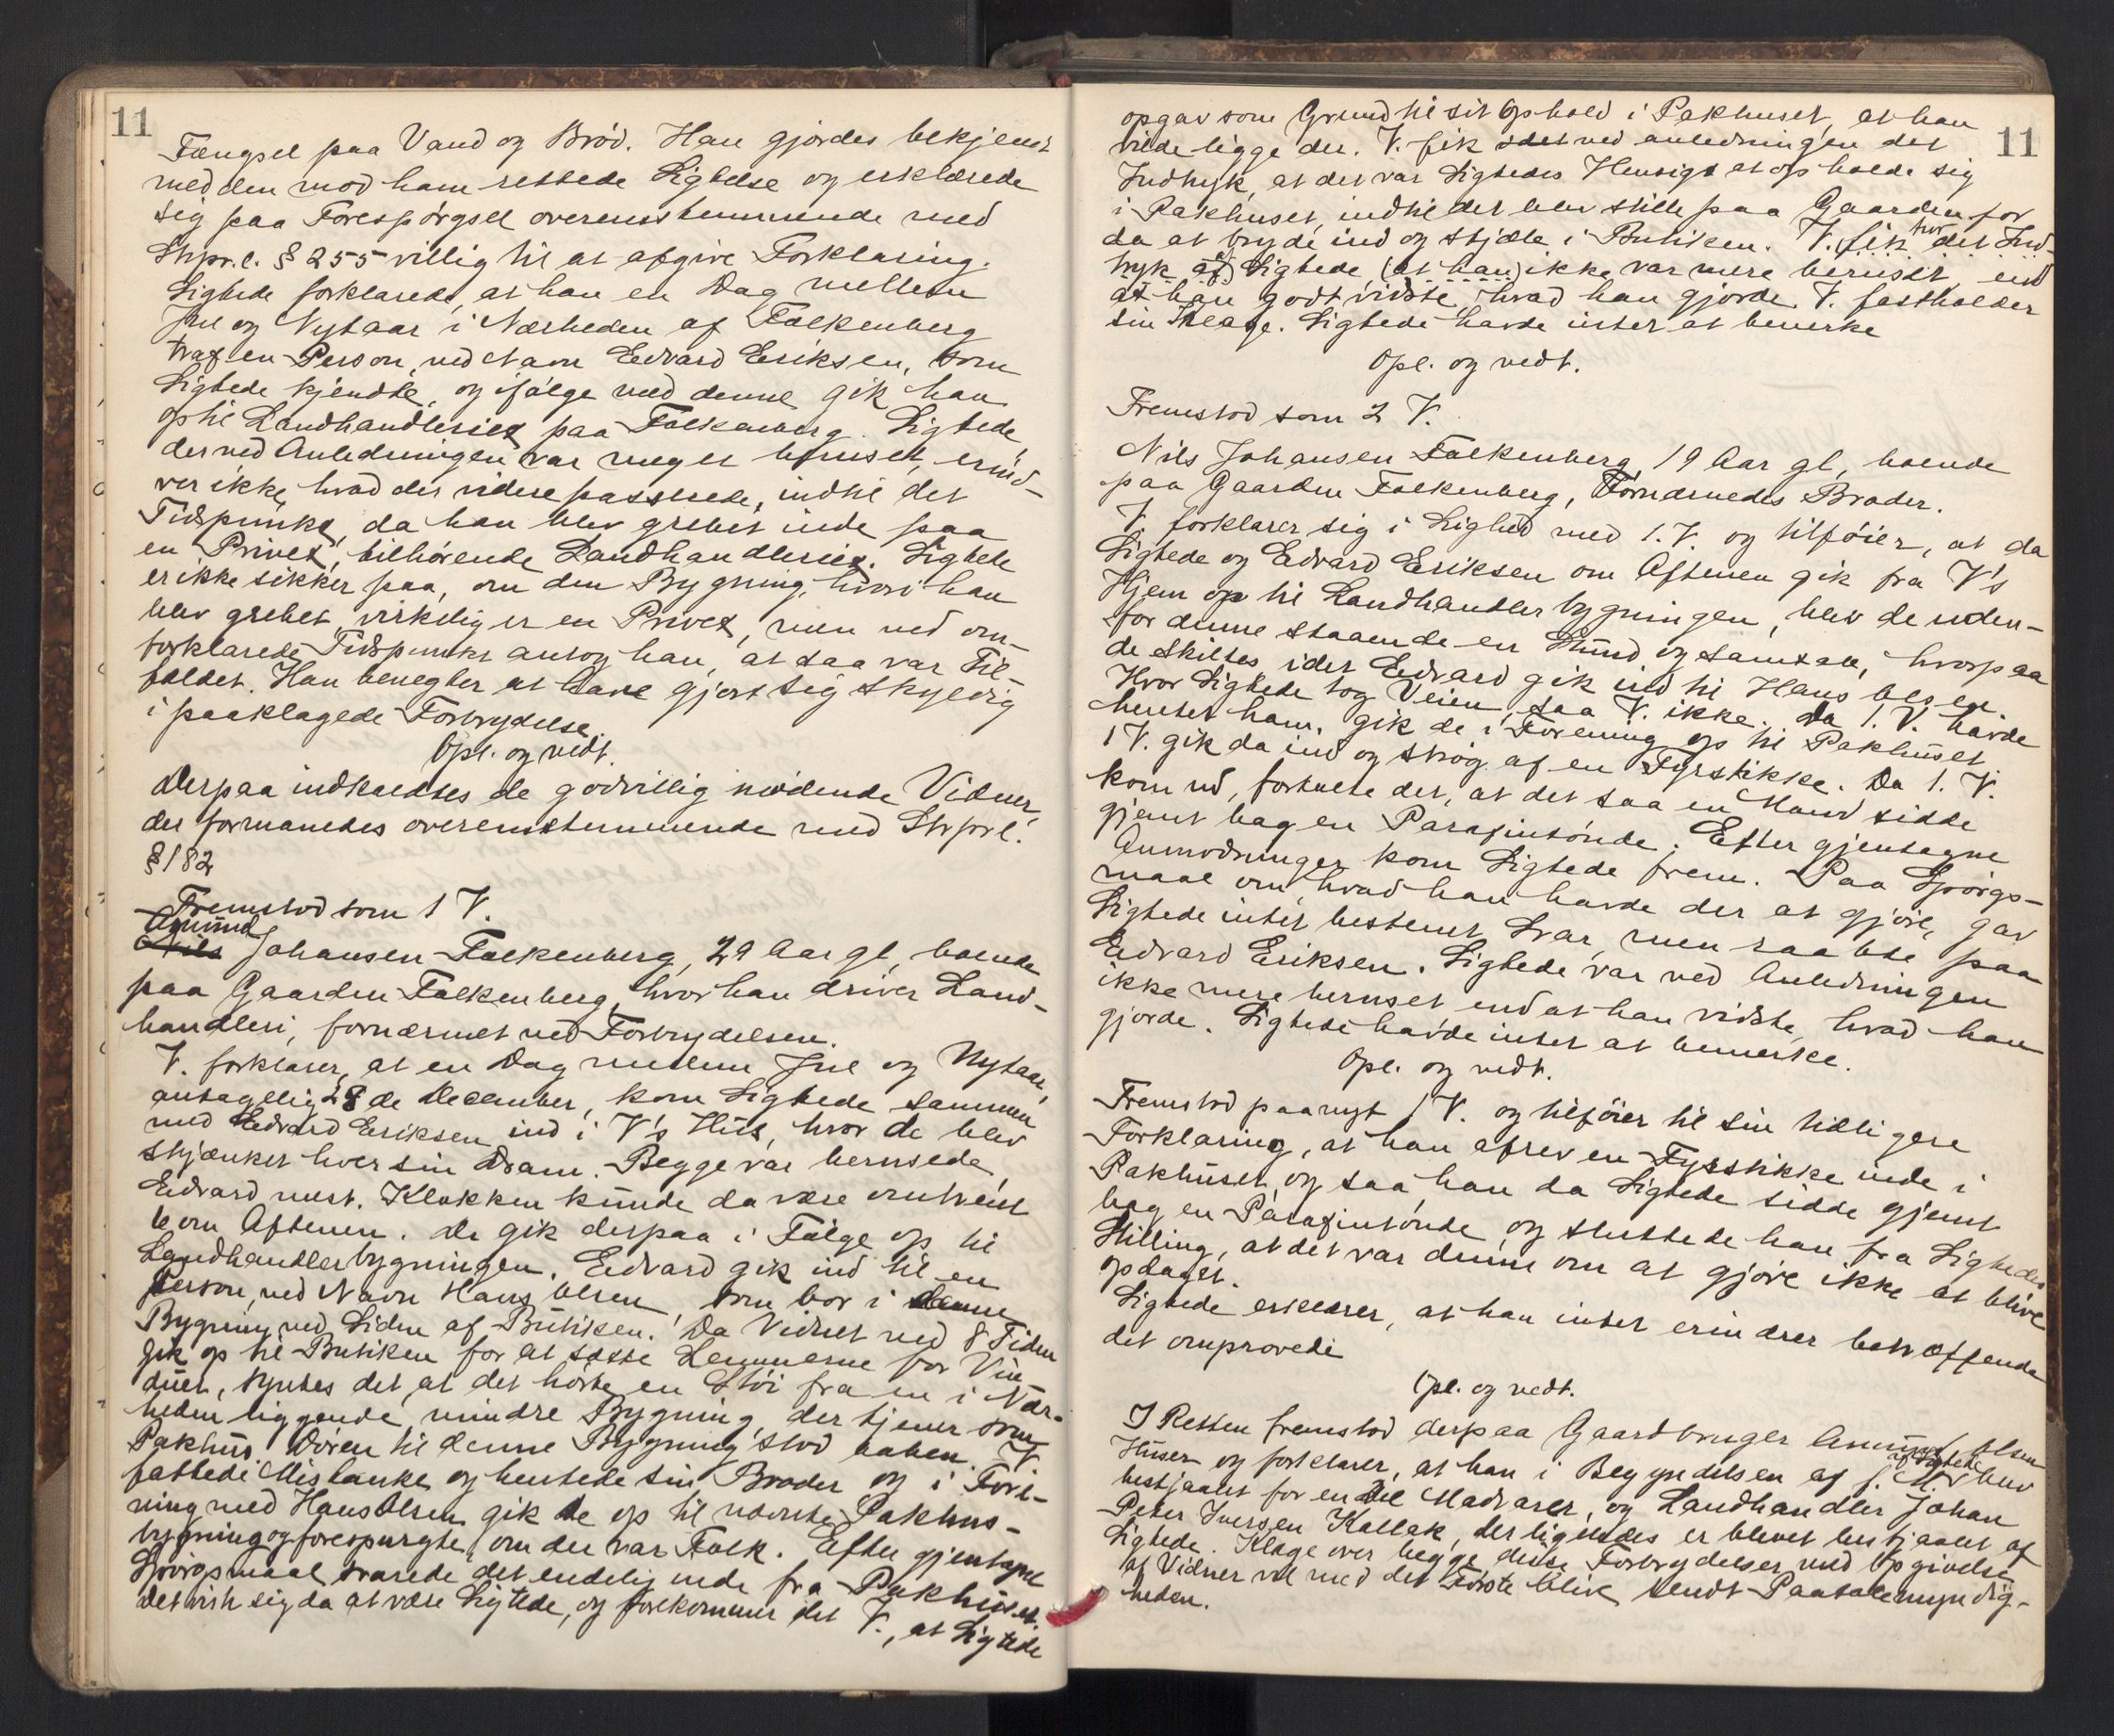 11
Fængsel paa Vand og Brød. Han gjordes bekjendt
med den mod ham rettede Sigtelse og erklærede
sig paa Forespørgsel overensstemmende med
Strpr.l. § 255 villig til at afgive Forklaring.
Sigtede forklarede, at han en Dag mellem
Jul og Nytaar i Nærheden af Falkenberg
traf en Person, ved Navn Edvard Eriksen, som
Sigtede kjendte, og ifølge med denne gik han
op til Landhandleriet paa Falkenberg. Sigtede,
der ved Anledningen var meget beruset, erind-
rer ikke, hvad der videre passerede, indtil det
Tidspunkt, da han blev grebet inde paa
en Privet, tilhørende Landhandleriet. Sigtede
er ikke sikker paa, om den Bygning, hvori han
blev grebet, virkelig er en Privet, men ved om-
forklarede Tidspunkt antog han, at saa var Til-
fældet. Han benegter at have gjort sig skyldig
i paaklagede Forbrydelse.
Opl. og vedt.
Derpaa indkaldtes de godvillig mødende Vidner,
der formanedes overensstemmende med Strprl.
§ 182
Fremstod som 1 V.
Amund
Nils Johansen Falkenberg, 29 Aar gl, boende
paa Gaarden Falkenberg, hvor han driver Land-
handleri, fornærmet ved Forbrydelsen.
V. forklarer, at en Dag mellem Jul og Nytaar,
antagelig 28de December, kom Sigtede sammen
med Edvard Eriksen ind i V's Hus, hvor de blev
skjænket hver sin Dram. Begge var berusede,
Edvard mest. Klokken kunde da være omtrent
6 om Aftenen. De gik derpaa i Følge op til
Landhandlerbygningen. Edvard gik ind til en
Person, ved Navn Hans Olsen, som bor i denne
Bygning ved Siden af Butikken. Da Vidnet ved 8 Tiden
gik op til Butiken for at sætte Lemmerne for Vin-
duet, syntes det, at det hørte en Støi fra en i Nær-
heden liggende, mindre Bygning, der tjener som
Pakhus. Døren til denne Bygning stod aaben. V.
fattede Mistanke og hentede sin Broder og i Fore-
ning med Hans Olsen gik de op til nævnte Pakhus-
bygning og forespurgte, om der var Folk. Efter gjentagne
Spørgsmaal svarede det endelig inde fra Pakhuset.
Det viste sig da at være Sigtede, og forekommer det V., at Sigtede
11
opgav som Grund til sit Ophold i Pakhuset, at han
vilde ligge der. V. fik ved anledningen det
Indtryk, at det var Sigtedes Hensigt at opholde sig
i Pakhuset, indtil det blev stille paa Gaarden for
da at bryde ind og stjæle i Butiken. V. fik det Ind-
tryk af Sigtede (at han) ikke var mere beruset, end
at han godt vidste, hvad han gjorde. V. fastholder
sin Klage. Sigtede havde intet at bemerke
Opl. og vedt.
Fremstod som 2 V.
Nils Johansen Falkenberg, 19 Aar gl, boende
paa Gaarden Falkenberg, Fornærmedes Broder.
V. forklarer sig i Lighed med 1. V. og tilføier, at da
Sigtede og Edvard Eriksen om Aftenen gik fra V's
Hjem op til Landhandlerbygningen, blev de uden-
for denne staaende en Stund og samtale, hvorpaa
de skiltes, idet Edvard gik ind til Hans Olsen.
Hvor Sigtede tog Veien, saa V. ikke. Da 1. V. havde
hentet ham, gik de i Forening op til Pakhuset.
1 V. gik da ind og strøg af en Fyrstikke. Da 1. V.
kom ud, fortalte det, at det saa en Mand sidde
gjemt bag en Parafintønde. Efter gjentagne
Anmodninger kom Sigtede frem. Paa Spørgs-
maal om, hvad han havde der at gjøre, gav
Sigtede intet bestemt Svar, men raabte paa
Edvard Eriksen. Sigtede var ved Anledningen
ikke mere beruset end at han vidste, hvad han
gjorde. Sigtede havde intet at bemerke.
Opl. og vedt.
Fremstod paanyt 1 V. og tilføier til sin tidligere
Forklaring, at han afrev en Fyrstikke inde i
Pakhuset og saa han da Sigtede sidde gjemt
bag en Parafintønde og sluttede han fra Sigtedes
Stilling, at det var denne om at gjøre ikke at blive
opdaget.
Sigtede erklærer, at han intet erindrer betræffende
det omprovede
Opl. og vedt.
I Retten fremstod derpaa Gaardbruger Amund Olsen
Huser og forklarer, at han i Begyndelsen af f. M. af Sigtede blev
bestjaalet for en Del Madvarer, og Landhandler Johan
Peter Iversen Kallak, der ligeledes er blevet bestjaalet af
Sigtede. Klage over begge disse Forbrydelser med Opgivelse
af Vidner vil med det Første blive sendt Paatalemyndig-
heden.